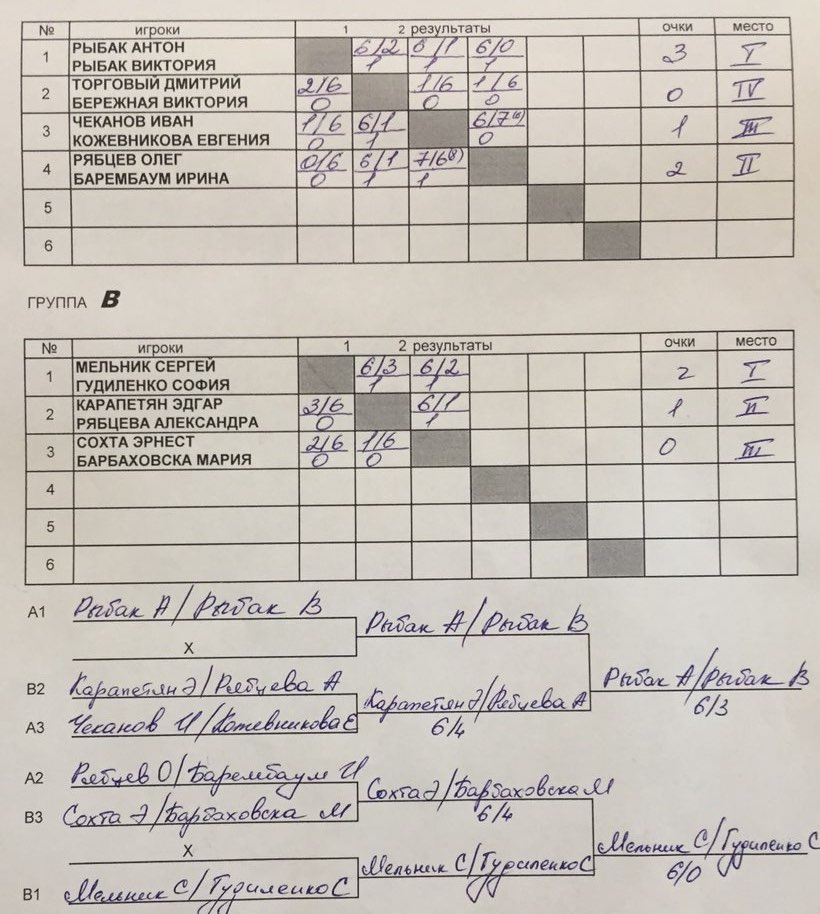 № игроки 1 2 результаты очки место
1 РЫБАК АНТОН 6/2 6/1 6/0 3 I
РЫБАК ВИКТОРИЯ 1 1 1
2 ТОРГОВЫЙ ДМИТРИЙ 2/6 1/6 1/6 0 IV
БЕРЕЖНАЯ ВИКТОРИЯ 0 0 0
3 ЧЕКАНОВ ИВАН 1/6 6/1 6/7(6) 1 III
КОЖЕВНИКОВА ЕВГЕНИЯ 0 1 0
4 РЯБЦЕВ ОЛЕГ 0/6 6/1 7/6(8) 2 II
БАРЕМБАУМ ИРИНА 0 1 1
5
6
ГРУППА B
№ игроки 1 2 результаты очки место
1 МЕЛЬНИК СЕРГЕЙ 6/3 6/2 2 I
ГУДИЛЕНКО СОФИЯ 1 1
2 КАРАПЕТЯН ЭДГАР 3/6 6/1 1 II
РЯБЦЕВА АЛЕКСАНДРА 0 1
3 СОХТА ЭРНЕСТ 2/6 1/6 0 III
БАРБАХОВСКА МАРИЯ 0 0
4
5
6
A1 Рыбак А/Рыбак В
Рыбак А/Рыбак В
X
Рыбак А/Рыбак В
6/3
B2 Карапетян Э/Рябцева А
Карапетян Э/Рябцева А
6/4
A3 Чеканов И/Кожевникова Е
A2 Рябцев О/Барембаум И
Сохта Э/Барбаховска М
6/4
B3 Сохта Э/Барбаховска М
X
Мельник С/Гудиленко С
6/0
Мельник С/Гудиленко С
B1 Мельник С/Гудиленко С